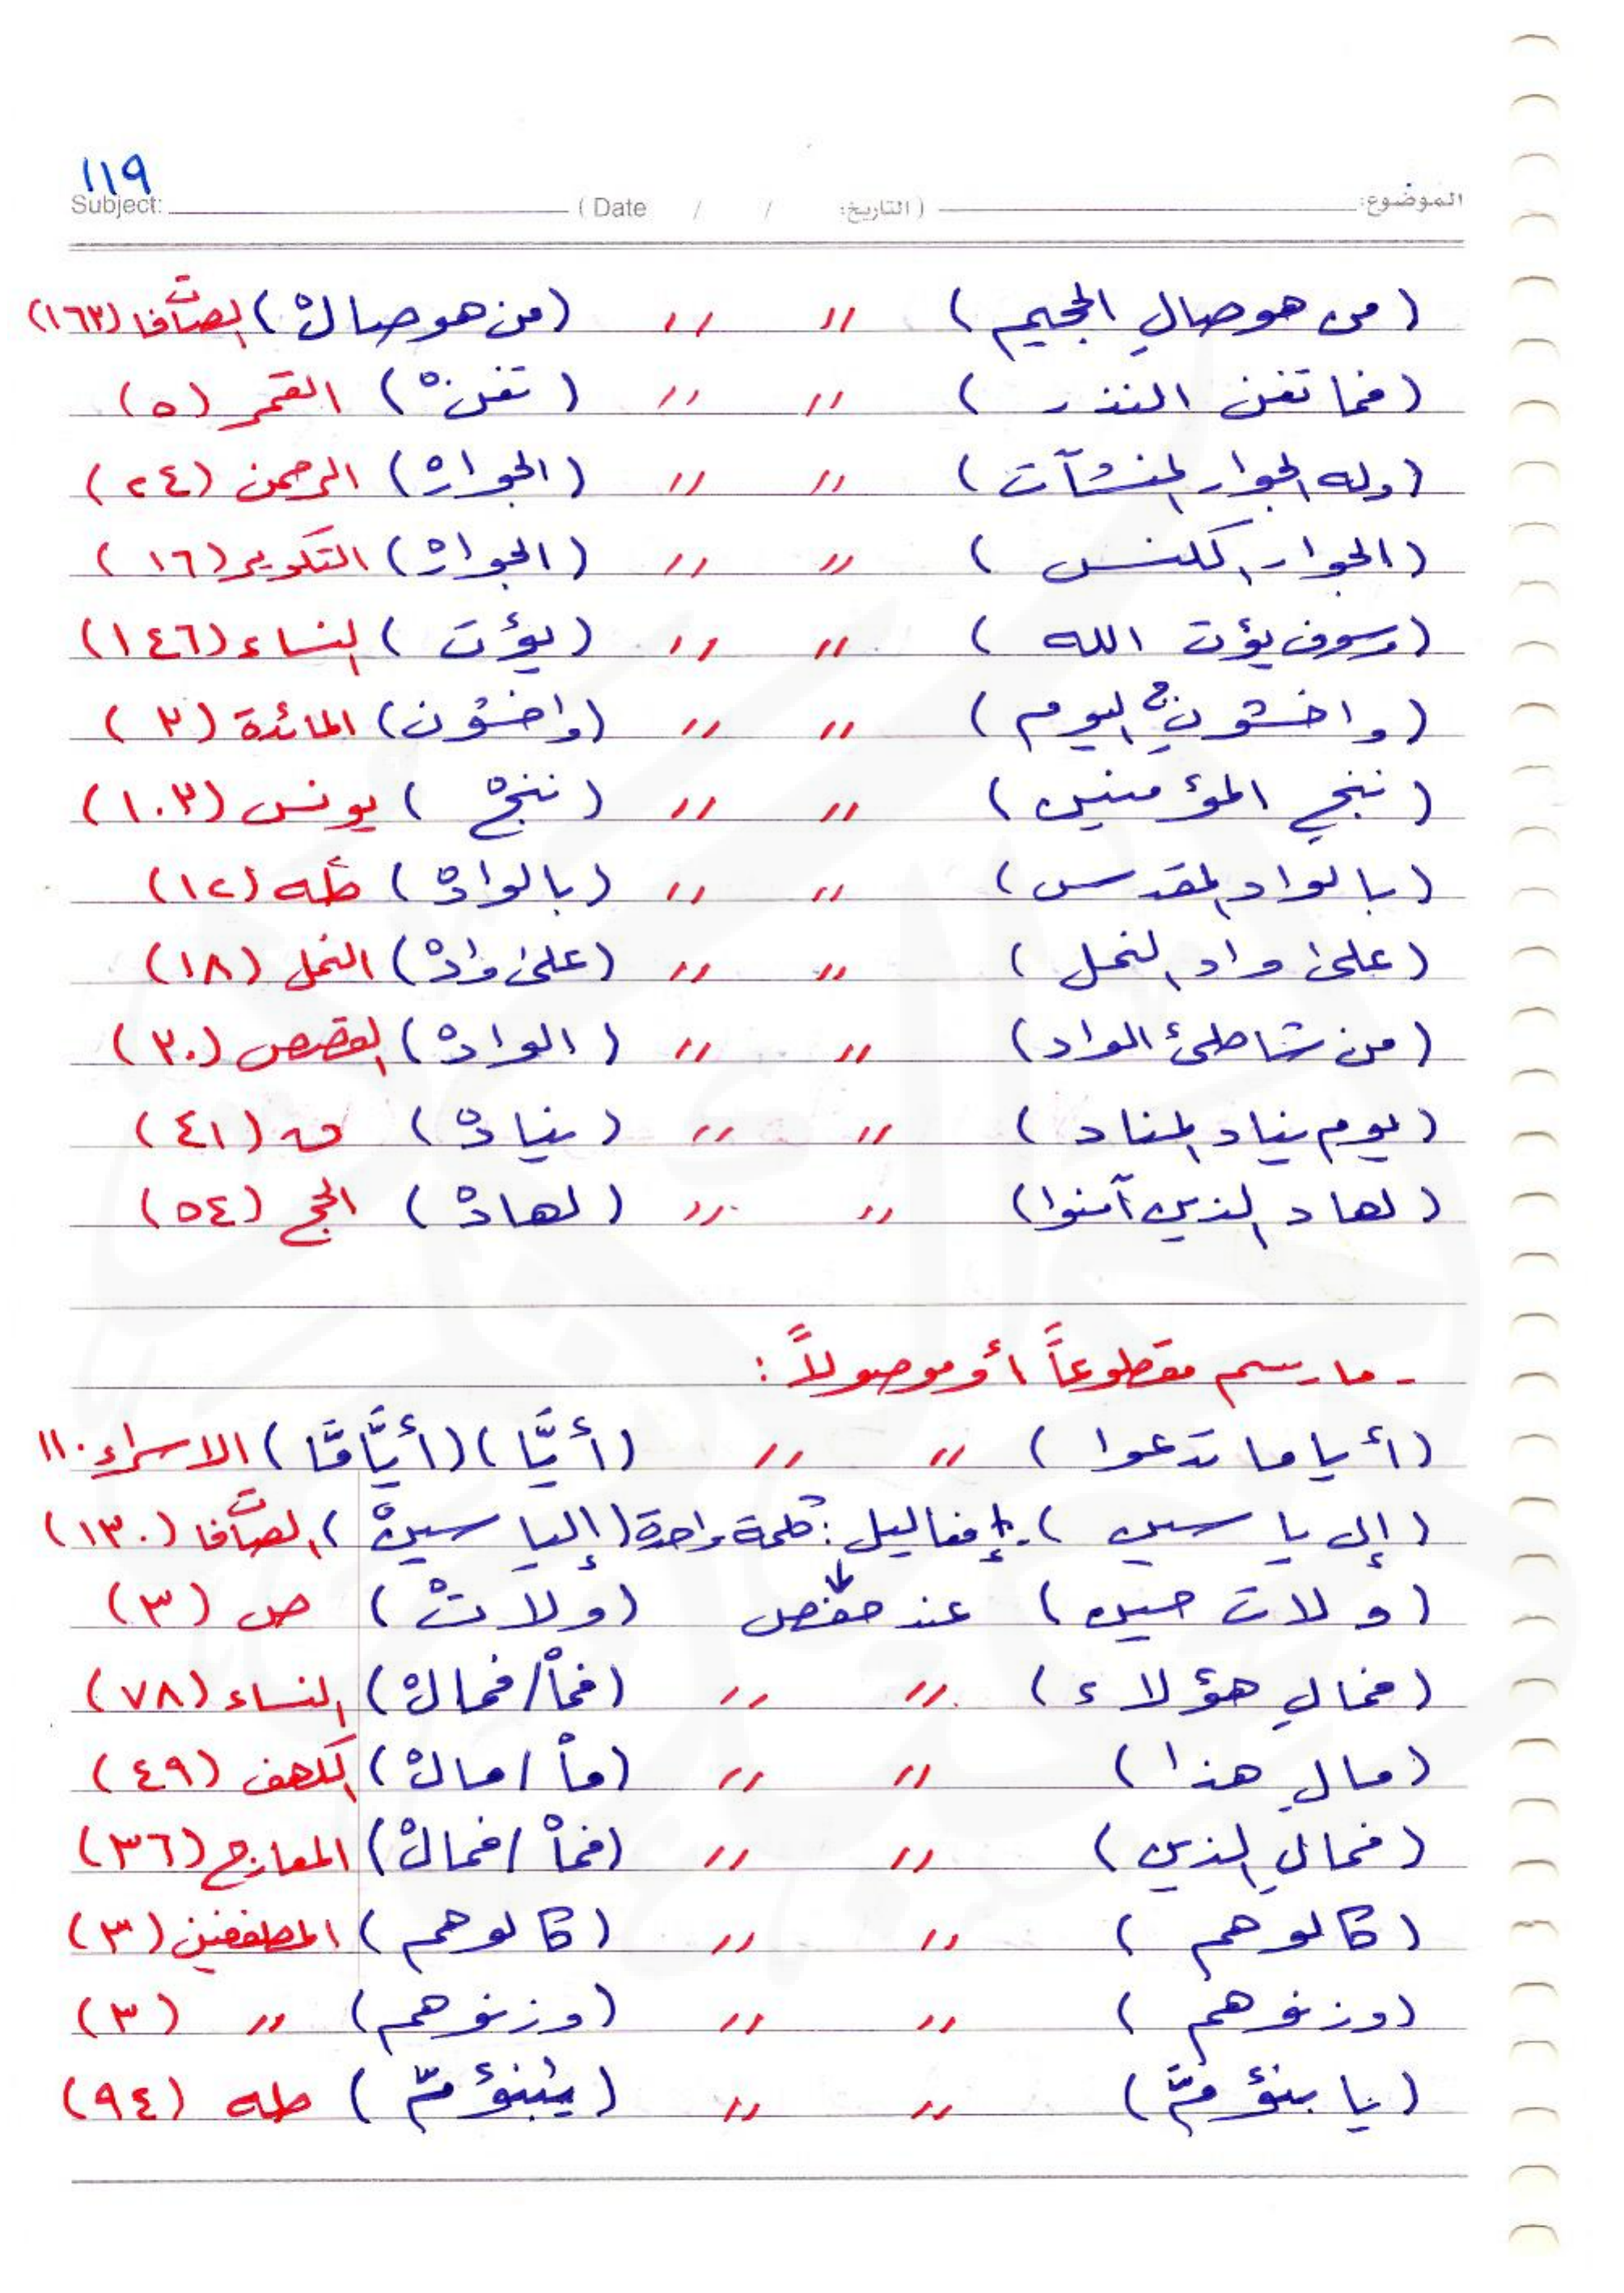 ١١٩
الموضوع: (التاريخ: / / Date) Subject:
(من هو صالِ الجحيم) // // (من هو صالْ) الصَّآفات (١٦٣)
(فما تغن النذر) // // (تغنْ) القمر (٥)
(وله الجوار المنشآت) // // (الجوارْ) الرحمن (٢٤)
(الجوار الكنس) // // (الجوارْ) التكوير (١٦)
(وسوف يؤت الله) // // (يؤت) النساء (١٤٦)
(واخشونِ اليوم) // // (واخشون) المائدة (٣)
(ننجِ المؤمنين) // // (ننجْ) يونس (١٠٣)
(بالواد المقدس) // // (بالوادْ) طه (١٢)
(على واد النمل) // // (على وادْ) النمل (١٨)
(من شاطئ الواد) // // (الوادْ) القصص (٣٠)
(يوم يناد المناد) // // (ينادْ) ق (٤١)
(لهاد الذين آمنوا) // // (لهادْ) الحج (٥٤)
- ما رسم مقطوعاً أو موصولاً:
(أيا ما تدعوا) // // (أيَّا) (أيَّامَّا) الاسراء ١١٠
(إل ياسين) كلمة واحدة (إلياسينْ) الصَّآفات (١٣٠)
(ولات حين) عند حفص (ولاتْ) ص (٣)
(فمالِ هؤلاء) // // (فماْ/فمالْ) النساء (٧٨)
(مالِ هذا) // // (ماْ/مالْ) الكهف (٤٩)
(فمالِ الذين) // // (فماْ/فمالْ) المعارج (٣٦)
(كالوهم) // // (كالوهم) المطففين (٣)
(وزنوهم) // // (وزنوهم) // (٣)
(يا بنؤمَّ) // // (يبنؤمّ) طه (٩٤)